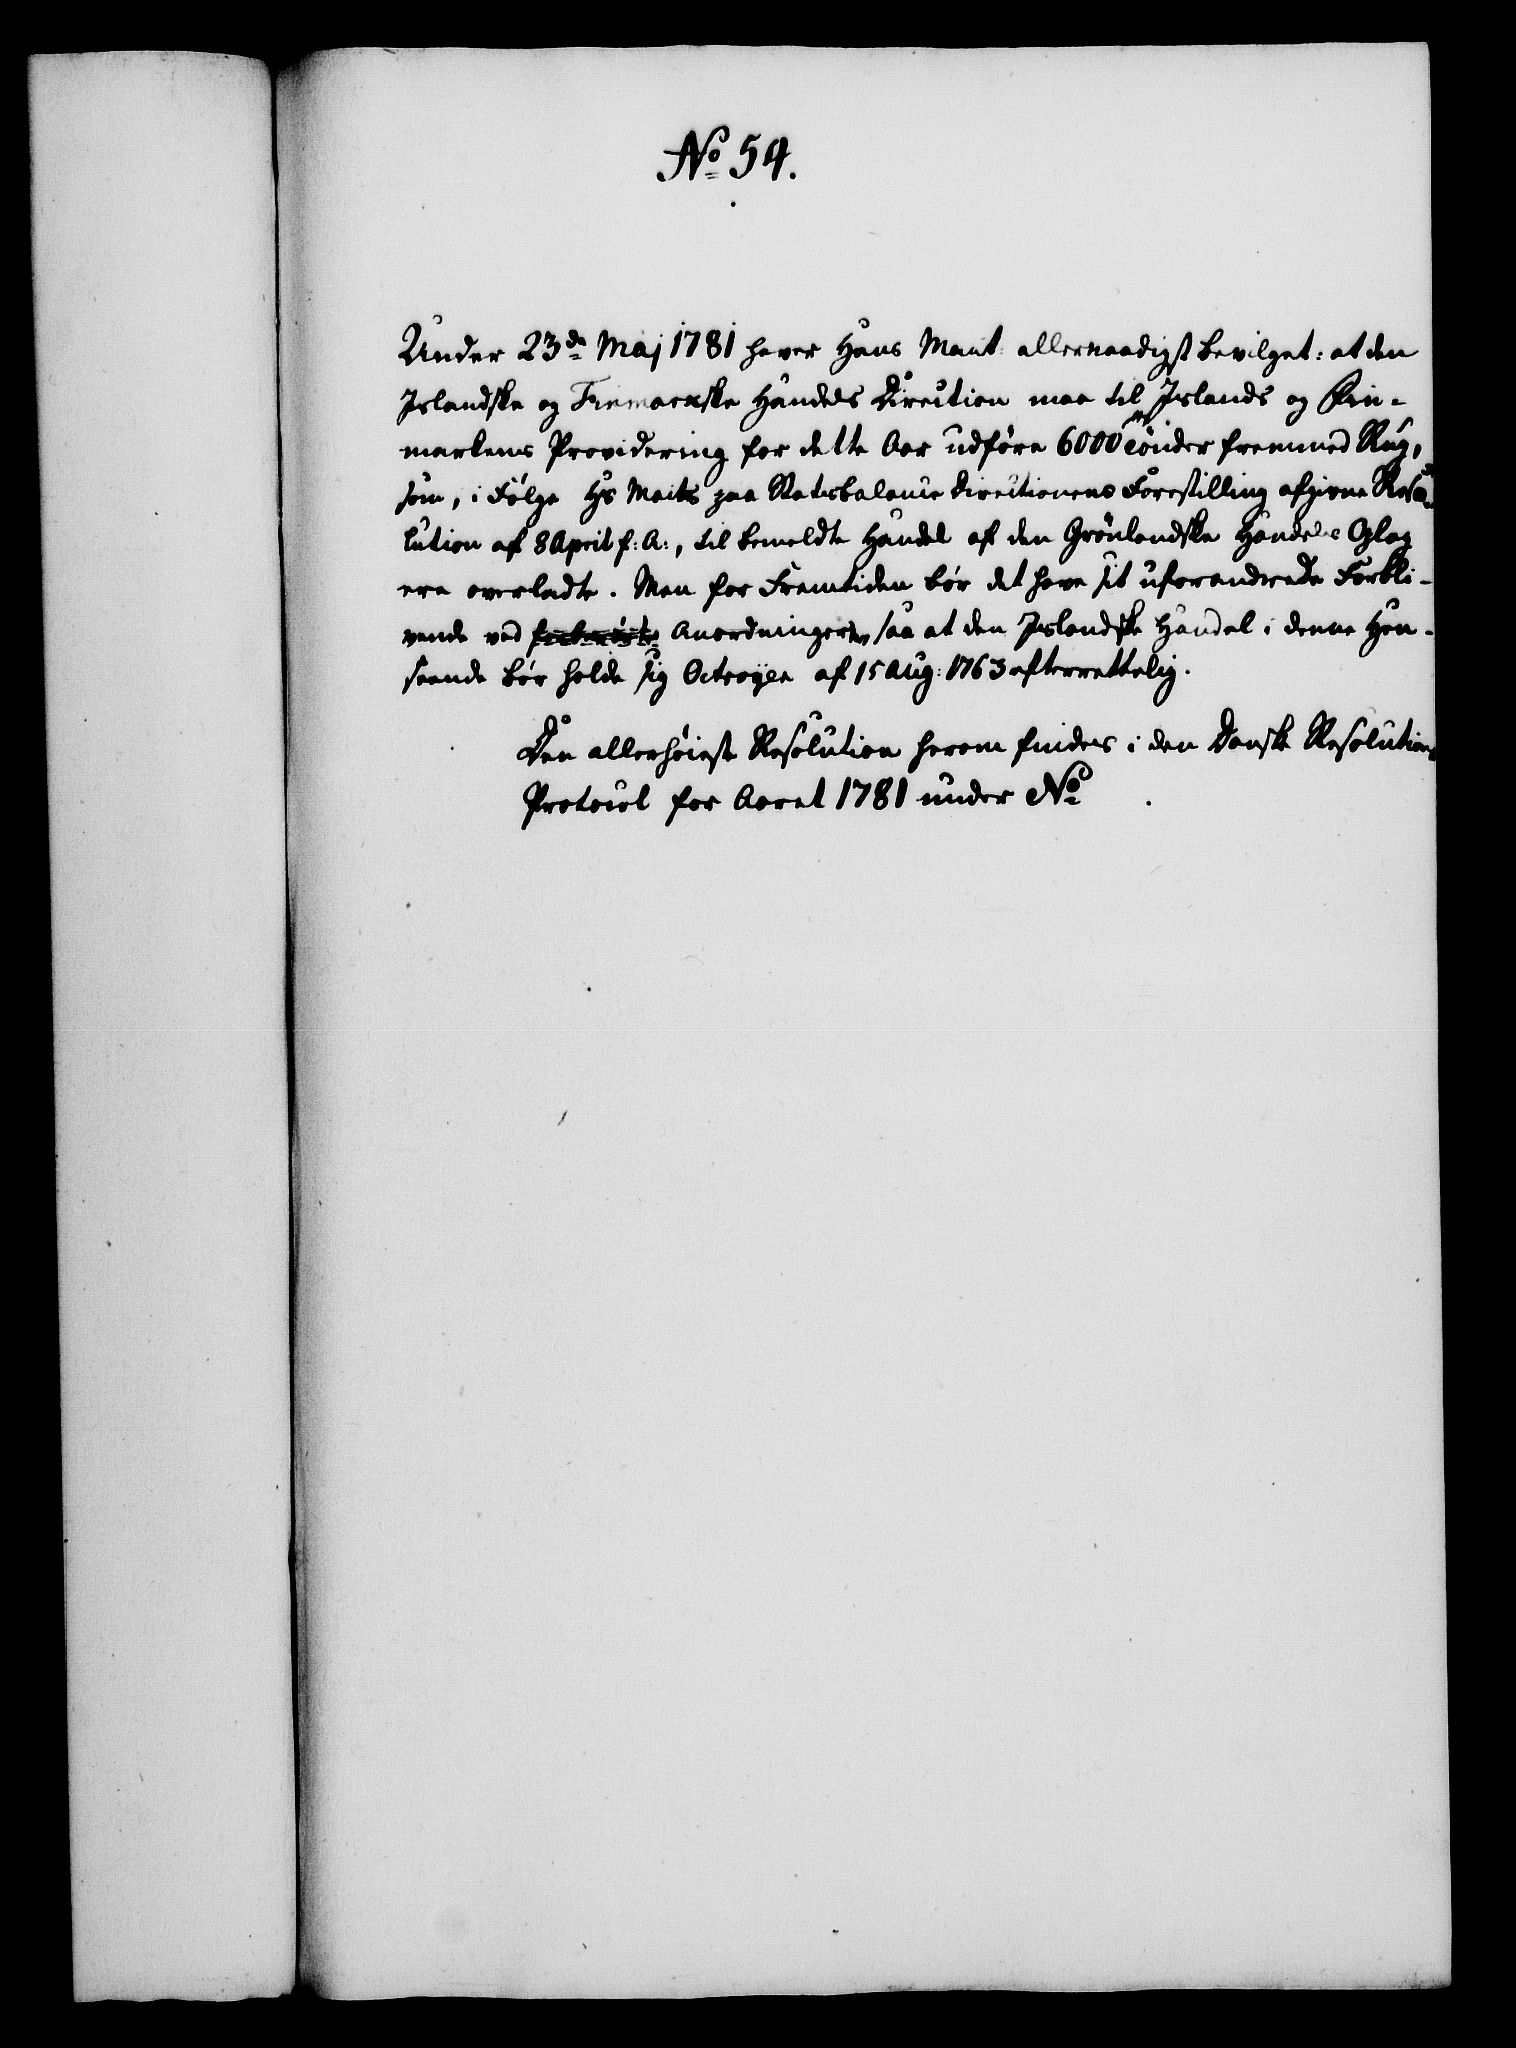 No 54.
Under 23de Maj 1781 haver Hans Mait: allernaadigst bevilget: at den
Islandske og Finmarkske Handels Direction maa til Islands og Fin-
markens Providering for dette Aar udføre 6000 Tønder fremmed Rug,
som, i Følge Hs Maits paa Statsbalance Directionens Forestilling afgivne Reso-
lution af 8 April f: A:, til bemeldte Handel af den Grønlandske Handels Oplag
ere overladte. Men for Fremtiden bør det have sit uforandrede Forbli-
vende ved Anordningerne, saa at den Islandske Handel i denne Hen-
seende bør holde sig Octroyen af 15 Aug: 1763 efterrettelig.
Den allerhøieste Resolution herom findes i den Danske Resolutions
Protocol for Aaret 1781 under No .